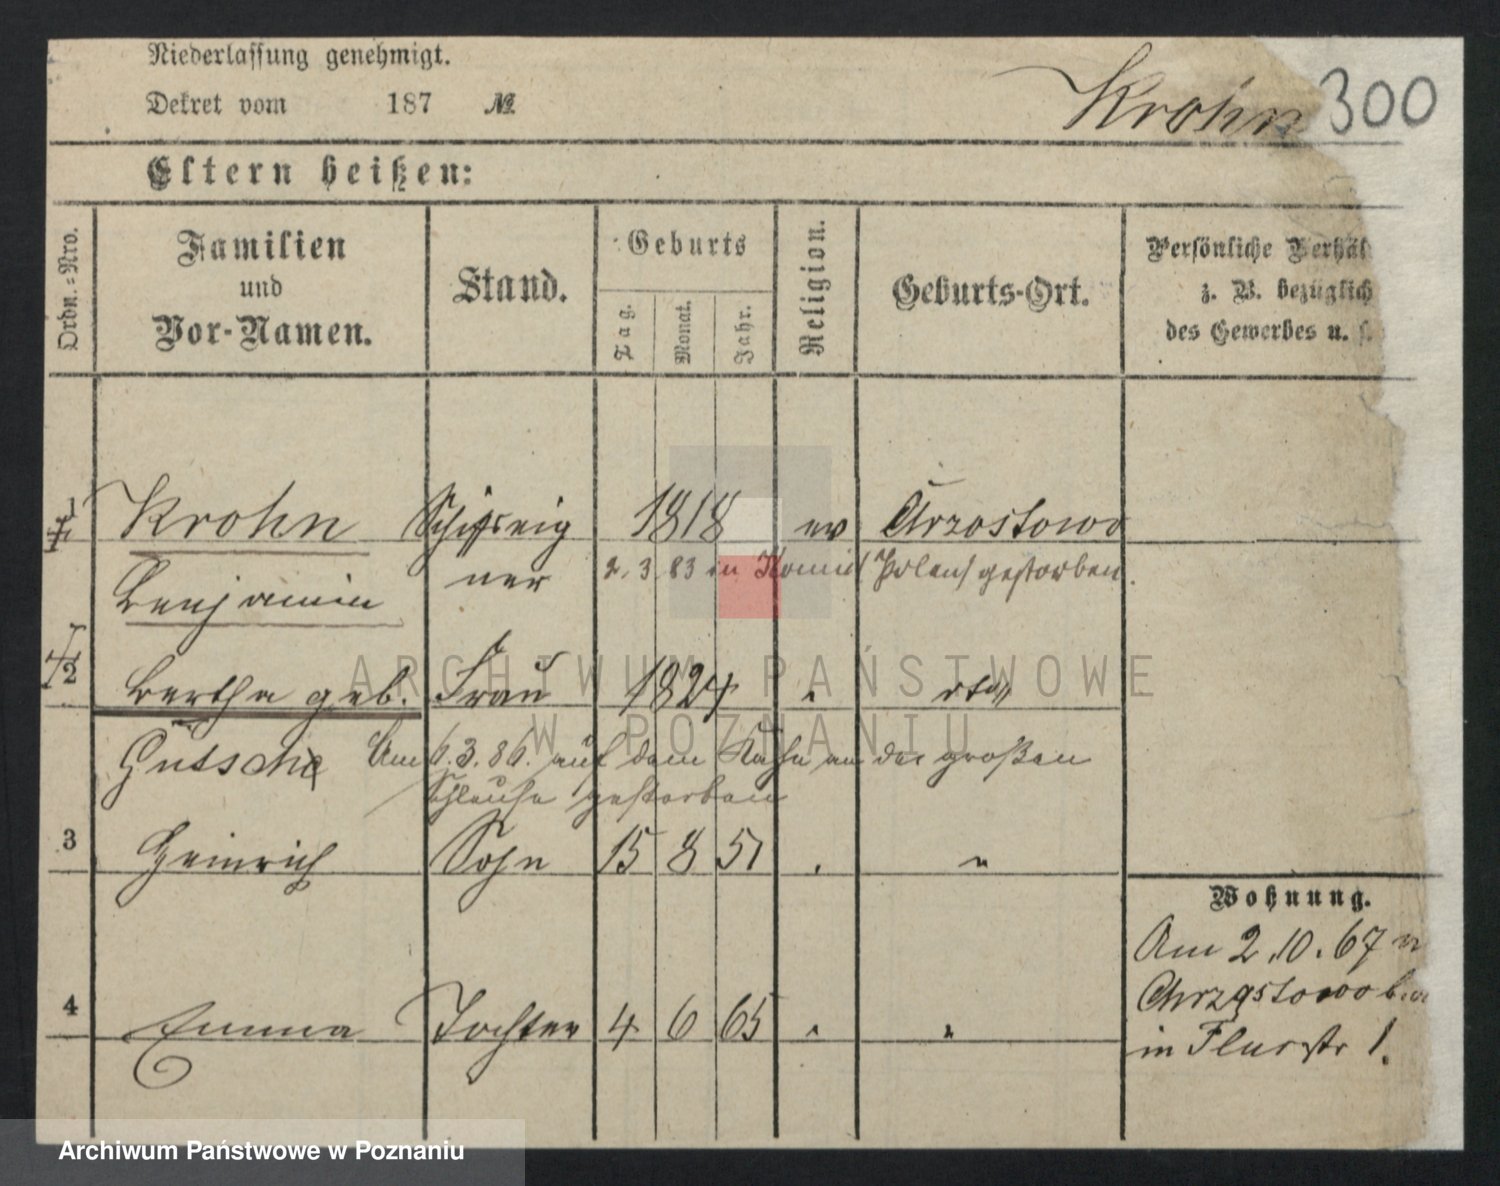 Niederlassung genehmigt.
Dekret vom 187 №
Krohn 300
Eltern heißen:
Ordn.=Nro.
Familien
und
Vor-Namen.
Stand.
Geburts
Tag.
Monat.
Jahr.
Religion.
Geburts-Ort.
Persönliche Verhäl
z. B. bezüglich
des Gewerbes u. s.
1 Krohn Schiffseig 1818 ev Chrzostowo
Benjamin ner 2. 3 83 in Polen gestorben.
2 Bertha geb. Frau 1824 " dto
Gutsche Am 6.3.86. auf dem Kahn an der großen
Schleuse gestorben
3 Heinrich Sohn 15 8 51 " "
4 Emma Tochter 4 6 65 " "
Wohnung.
Am 2.10.67 v
Chrzostowo
in Flurstr 1.
ARCHIWUM PAŃSTWOWE
W POZNANIU
Archiwum Państwowe w Poznaniu